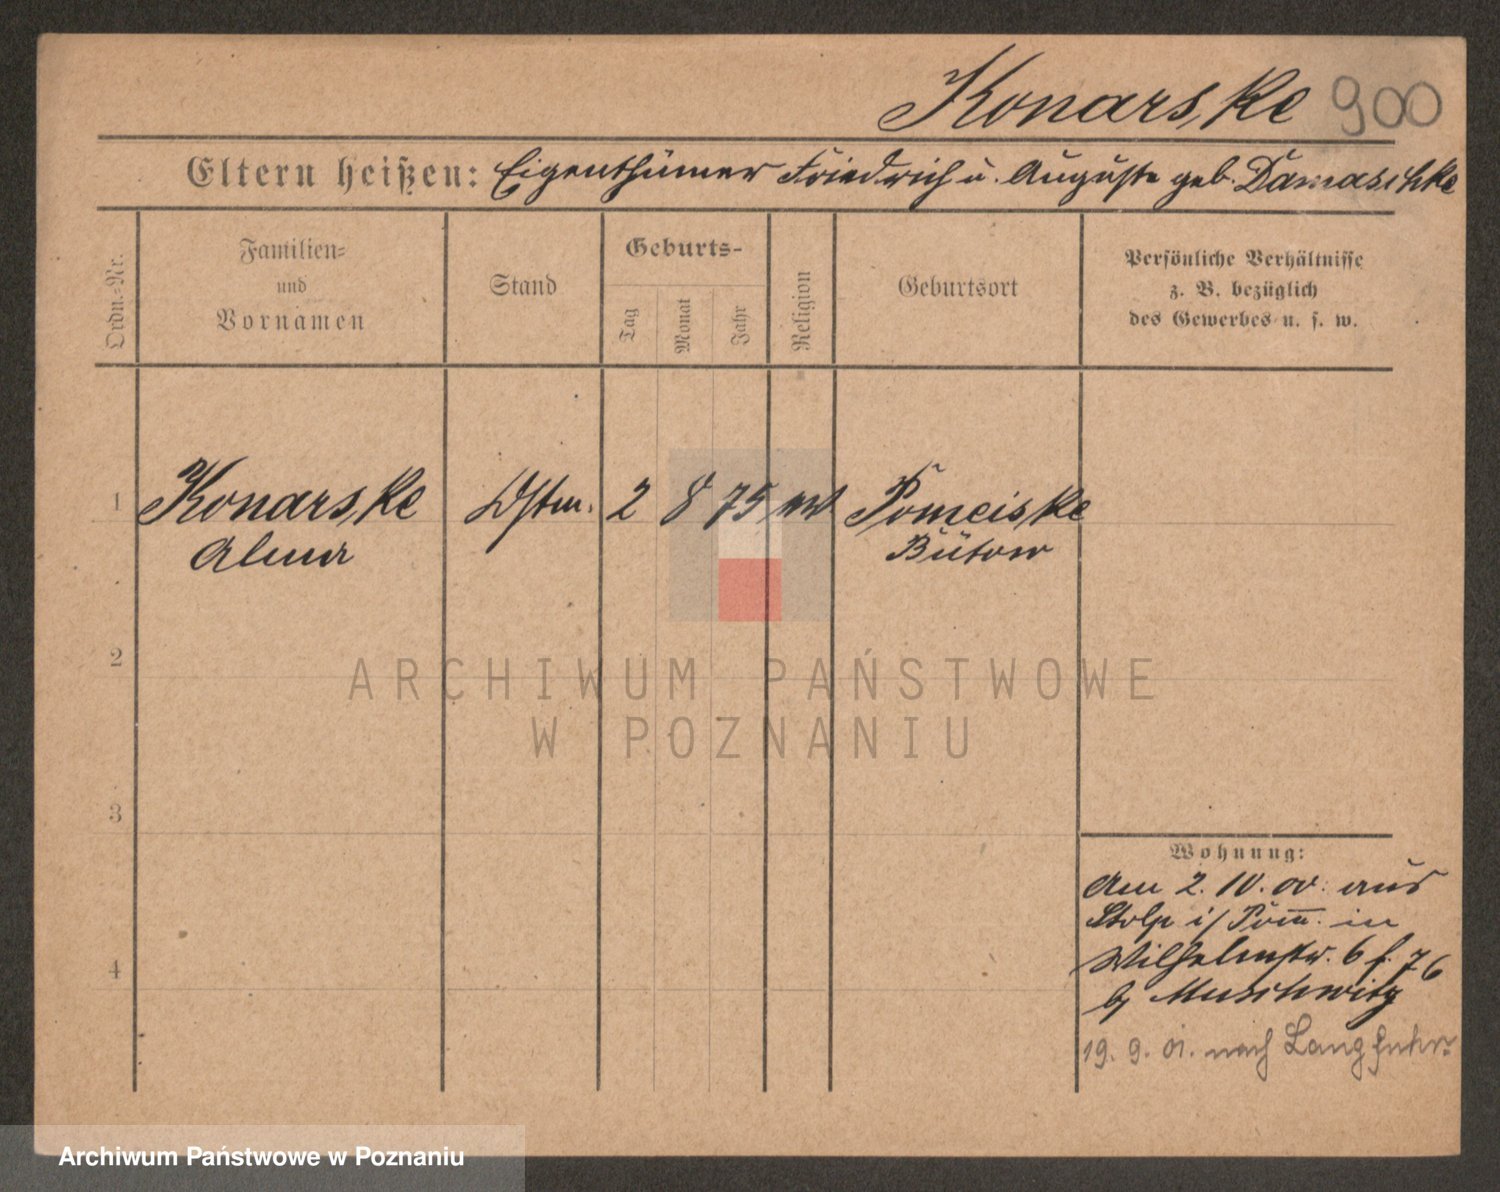 Konarske 900
Eltern heißen: Eigenthümer Friedrich u. Auguste geb. Damaschke
Ordn.-Nr.
Familien-
und
Vornamen
Stand
Geburts-
Tag
Monat
Jahr
Religion
Geburtsort
Persönliche Verhältnisse
z. B. bezüglich
des Gewerbes u. s. w.
1 Konarske 2 8 75 Pomeiske
Alma Bütow
2
ARCHIWUM PAŃSTWOWE
W POZNANIU
3
Wohnung:
Am 2. 10. 00. aus
Stolp i/Pom. in
Wilhelmstr. 6 f. 76
b/ Muschwitz
4
19. 9. 01. nach Langfuhr
Archiwum Państwowe w Poznaniu